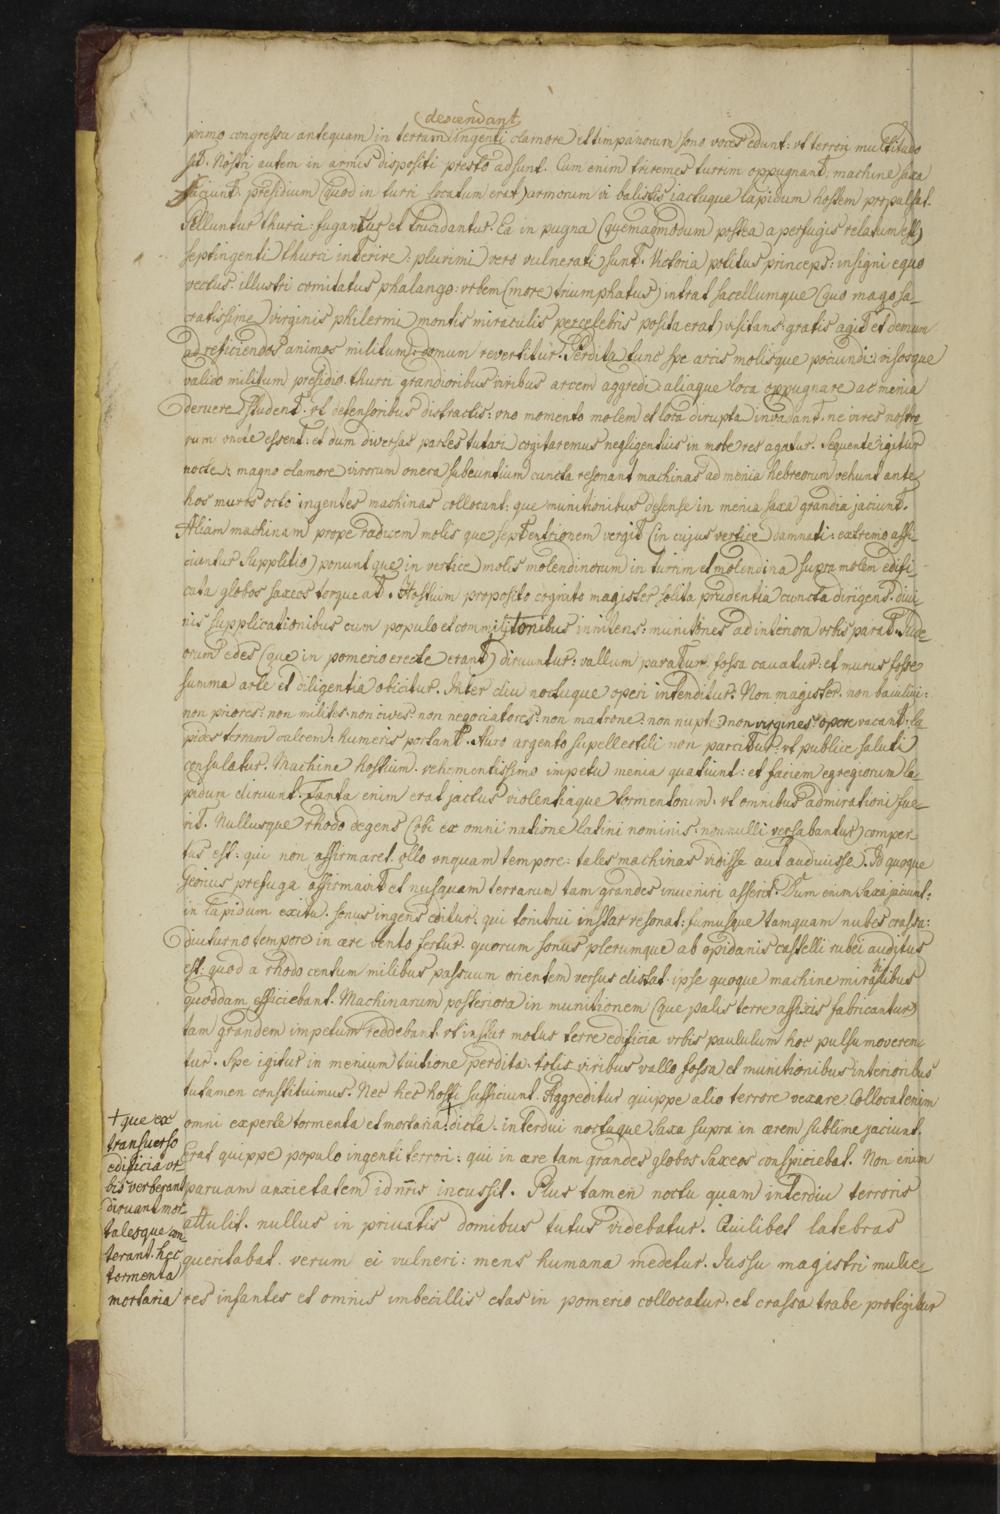 descendant
primo congressu antequam in terram ingenti clamore et timpanorum sono voces edunt: vt terrori multitudo
sit. Nostri autem in armis dispositi presto adsunt. Cum enim triremes turrim oppugnant, machine saxa
jaciunt. presidium (quod in turri locatum erat) armorum vi balistis iactuque lapidum hostem propulsat.
Pelluntur thurci: fugantur et trucidantur. Ea in pugna (quemadmodum postea a perfugis relatum est)
septingenti thurci interire: plurimi vero vulnerati sunt. Victoria politus princeps: insigni equo
vectus. illustri comitatus phalange: vrbem (more triumphatus) intrat sacellumque (quo mago sa-
cratissime virginis philermi montis miraculis percelebris posita erat) visitans: gratis agit et demum
ad reficiendos animos militum: domum revertitur. Perdita tunc spe arcis molisque pociundi: visosque
valido militum presidio. thurci grandioribus viribus arcem aggredi aliaque loca oppugnare ac menia
deruere student. vt defensoribus distractis: vno momento molem et loca dirupta invadant. ne vires nostro
rum vnite essent: et dum diversas partes tutari cogitaremus negligentius in mole res agatur. Sequente igitur
nocte: magno clamore virorum onera subeuntium cuncta resonant machinas ad menia hebreorum vehunt ante
hos muros octo ingentes machinas collocant: que munitionibus defense in menia saxa grandia jaciunt.
Aliam machinam prope radicem molis que septentrionem vergit (in cujus vertice damnati: extremo affi
ciuntur supplitio) ponunt que in vertice molis molendinorum in turrim et molendina supra molem edifi-
cata globos saxeos torqueat. Hostium proposito cognito magister solita prudentia cuncta dirigens. diui
nis supplicationibus cum populo et commilitonibus innitens: munitiones ad interiora vrbis parat. Jude
orum edes (que in pomerio erecte erant) diruuntur: vallum paratur, fossa cauatur: et murus fosse
summa arte et diligentia obicitur. Inter diu noctuque operi intenditur. Non magister. non baulivi:
non priores: non milites. non ciues. non negociatores: non matrone. non nupte: non virgines opere vacant. la
pides terram calcem. humeris portant. Auro argento supellectili non parcitur. vt publice saluti
consulatur. Machine hostium. vehementissimo impetu menia quatiunt: et faciem egregiorum la
pidum diruunt. Tanta enim erat jactus violentiaque tormentorum. vt omnibus admirationi fue-
rit. Nullusque rhodo degens (vbi ex omni natione latini nominis. nonnulli versabantur) comper
tus est: qui non affirmaret. vllo vnquam tempore: tales machinas vidisse aut audiuisse. Id quoque
Georius prefuga affirmavit et nusquam terrarum tam grandes inueniri asserit. Dum enim saxa jaciunt:
in lapidum exitu. sonus ingens editur, qui tonitrui instar resonat: fumusque tamquam nubes crassa:
diuturno tempore in aere vento fertur. quorum sonus plerumque ab opidanis castelli rubei auditus
est: quod a rhodo centum milibus passuum orientem versus distat. ipse quoque machine mirabilibus
quoddam efficiebant. Machinarum posteriora in munitionem (que palis terre affixis fabricantur)
tam grandem impetum reddebant. vt instar motus terre edificia vrbis paululum hoc pulsu moveren
tur. Spe igitur in menium tuitione perdita. totis viribus vallo fossa et munitionibus interioribus
tutamen constituimus. Nec hec hosti sufficiunt. Aggreditur quippe alio terrore vexare. Collocat enim
omni exparte tormenta et mortaria + dicta. interdui noctuque saxa supra in aerem sublime jaciunt.
Erat quippe populo ingenti terrori: qui in aere tam grandes globos saxeos conspiciebat. Non enim
paruam anxietatem id nris incussit. Plus tamen noctu quam interdiu terroris
attulit. nullus in priuatis domibus tutus videbatur. Quilibet latebras
queritabat. verum ei vulneri: mens humana medetur. Jussu magistri mulie-
res infantes et omnis imbecillis etas in pomerio collocatur. et crassa trabe protegitur
+ que ex
transuerso
edificia vr-
bis verberant
diruant mor
talesque con
terant. hec
tormenta
mortaria